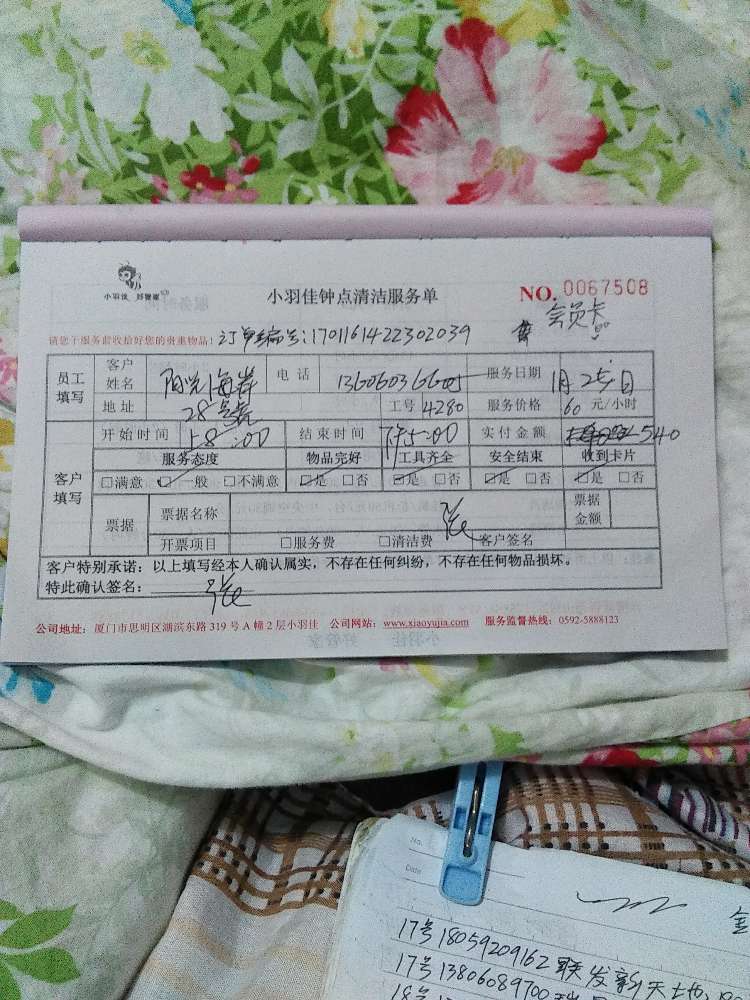 小羽佳 好管家
小羽佳钟点清洁服务单
NO. 0067508
会员卡
请您于服务前收拾好您的贵重物品: 订单编号:1701161422302039
员工填写 客户姓名 阳光海岸 电话 服务日期 1月25日
地址 28号 工号 4280 服务价格 60 元/小时
开始时间 8:00 结束时间 下午5:00 实付金额 540
服务态度 物品完好 工具齐全 安全结束 收到卡片
客户填写 □满意 □一般 □不满意 □是 □否 □是 □否 □是 □否 □是 □否
票据 票据名称 票据金额
开票项目 □服务费 □清洁费 客户签名 张
客户特别承诺: 以上填写经本人确认属实,不存在任何纠纷,不存在任何物品损坏。
特此确认签名: 张
公司地址: 厦门市思明区湖滨东路 319 号 A 幢 2 层小羽佳 公司网站: www.xiaoyujia.com 服务监督热线: 0592-5888123
No.
Date
17号 18059209162 联发新天地
17号 13806089700
18号